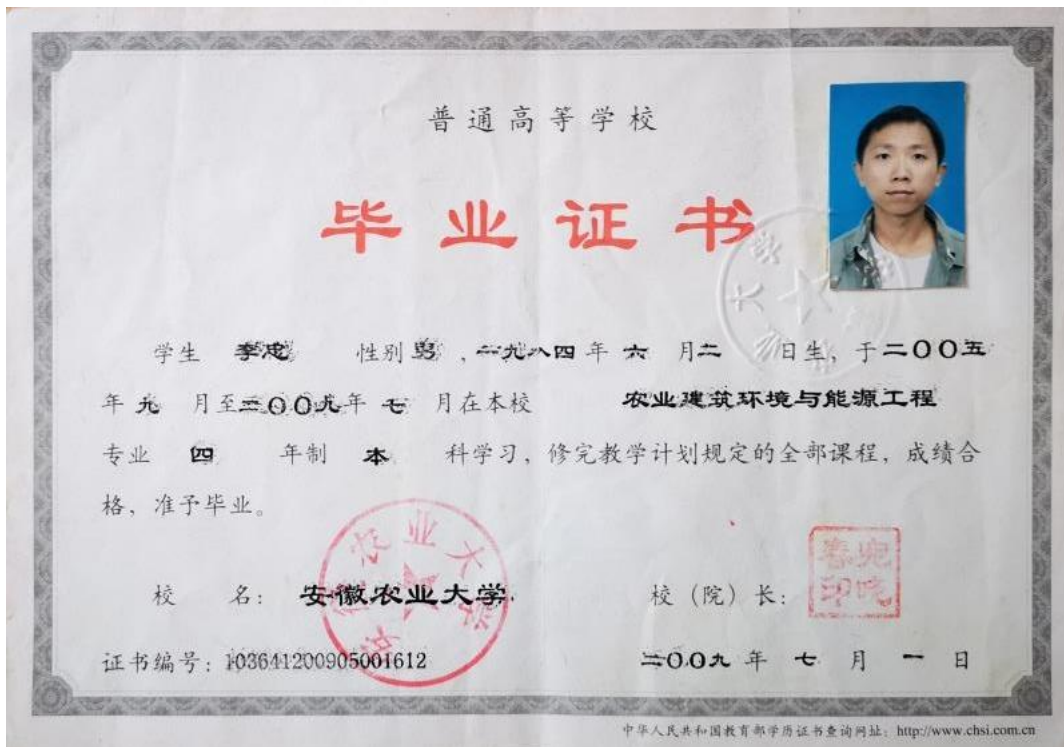 普通高等学校
毕业证书
学生 李忠 性别 男，一九八四年 六 月二 日生，于二〇〇五
年 九 月至二〇〇九年 七 月在本校 农业建筑环境与能源工程
专业 四 年制 本 科学习，修完教学计划规定的全部课程，成绩合
格，准予毕业。
安徽农业大学
校 名：安徽农业大学 校（院）长：
证书编号：103641200905001612 二〇〇九 年 七 月 一 日
中华人民共和国教育部学历证书查询网址：http://www.chsi.com.cn